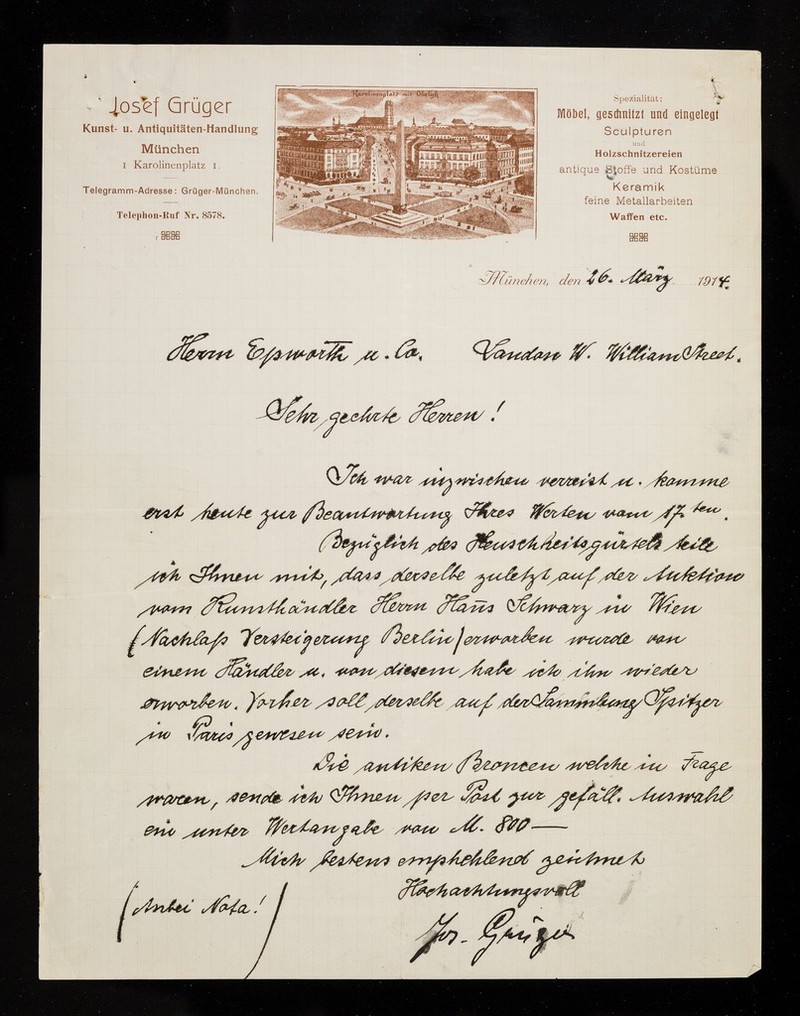 Josef Grüger
Kunst- u. Antiquitäten-Handlung
München
1 Karolinenplatz 1.
Telegramm-Adresse: Grüger-München.
Telephon-Ruf Nr. 8578.
Karolinenplatz mit Obelisk
Spezialität:
Möbel, geschnitzt und eingelegt
Sculpturen
und
Holzschnitzereien
antique Stoffe und Kostüme
Keramik
feine Metallarbeiten
Waffen etc.
München, den 26. März 1914.
Herrn Epsworth u. Co. London W. William Street.
Sehr geehrte Herren!
Ich war inzwischen verreist u. komme
erst heute zur Beantwortung Ihres Werten vom 17ten.
Bezüglich des Keuschheitsgürtels teile
ich Ihnen mit, dass derselbe zuletzt auf der Auktion
vom Kunsthändler Herrn Hans Schwarz in Wien
(Nachlaß Versteigerung Berlin) erworben wurde von
einem Händler u. von diesem habe ich ihn wieder
erworben. Vorher soll derselbe auf der Sammlung Spitzer
in Paris gewesen sein.
Die antiken Broncen welche in Frage
waren, sende ich Ihnen per Post zur gefäll. Auswahl
ein unter Wertangabe von M. 800 —
Mich bestens empfehlend zeichnet
Hochachtungsvoll
(Anbei Nota!)
Jos. Grüger